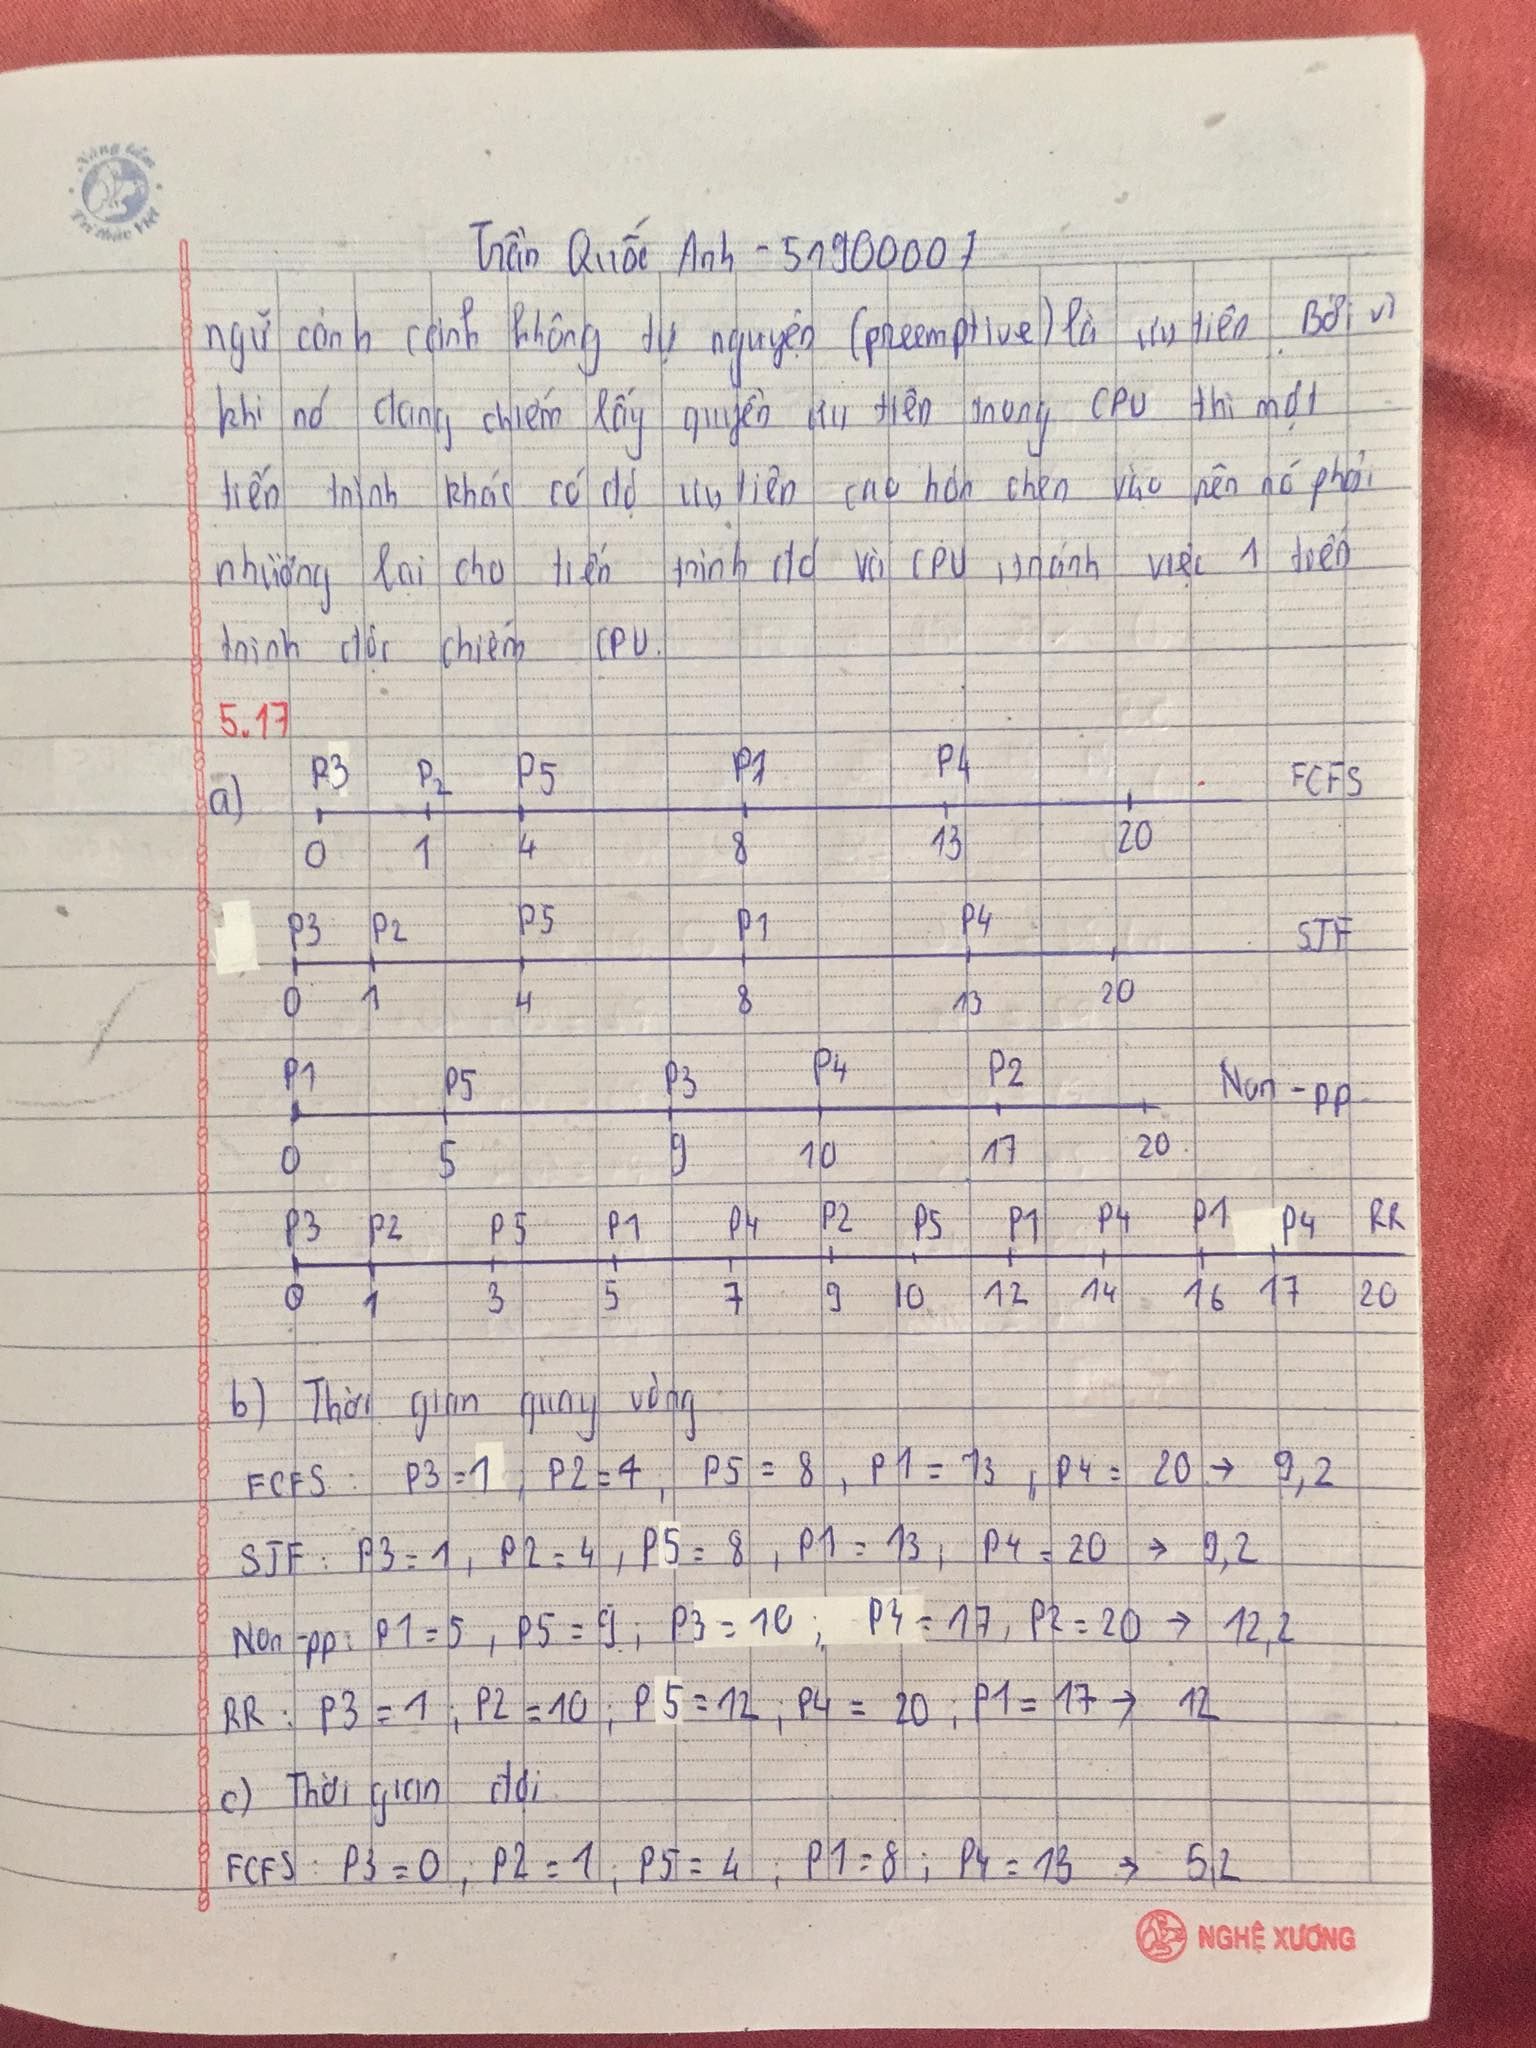 Nâng tầm
Tri thức Việt
Trần Quốc Anh - 51900007
ngữ cảnh cảnh không tự nguyện (preemptive) là ưu tiên. Bởi vì
khi nó đang chiếm lấy quyền ưu tiên trong CPU thì một
tiến trình khác có độ ưu tiên cao hơn chen vào nên nó phải
nhường lại cho tiến trình đó và CPU tránh việc 1 tiến
trình độc chiếm CPU.
5.17
a) P3 P2 P5 P1 P4 FCFS
0 1 4 8 13 20
P3 P2 P5 P1 P4 SJF
0 1 4 8 13 20
P1 P5 P3 P4 P2 Non-pp
0 5 9 10 17 20
P3 P2 P5 P1 P4 P2 P5 P1 P4 P1 P4 RR
0 1 3 5 7 9 10 12 14 16 17 20
b) Thời gian quay vòng
FCFS: P3=1, P2=4, P5=8, P1=13; P4=20 → 9,2
SJF: P3=1, P2=4, P5=8, P1=13; P4=20 → 9,2
Non-pp: P1=5, P5=9; P3=10; P4=17, P2=20 → 12,2
RR: P3=1; P2=10; P5=12; P4=20; P1=17 → 12
c) Thời gian đợi
FCFS: P3=0; P2=1; P5=4; P1=8; P4=13 → 5,2
NGHỆ XƯƠNG